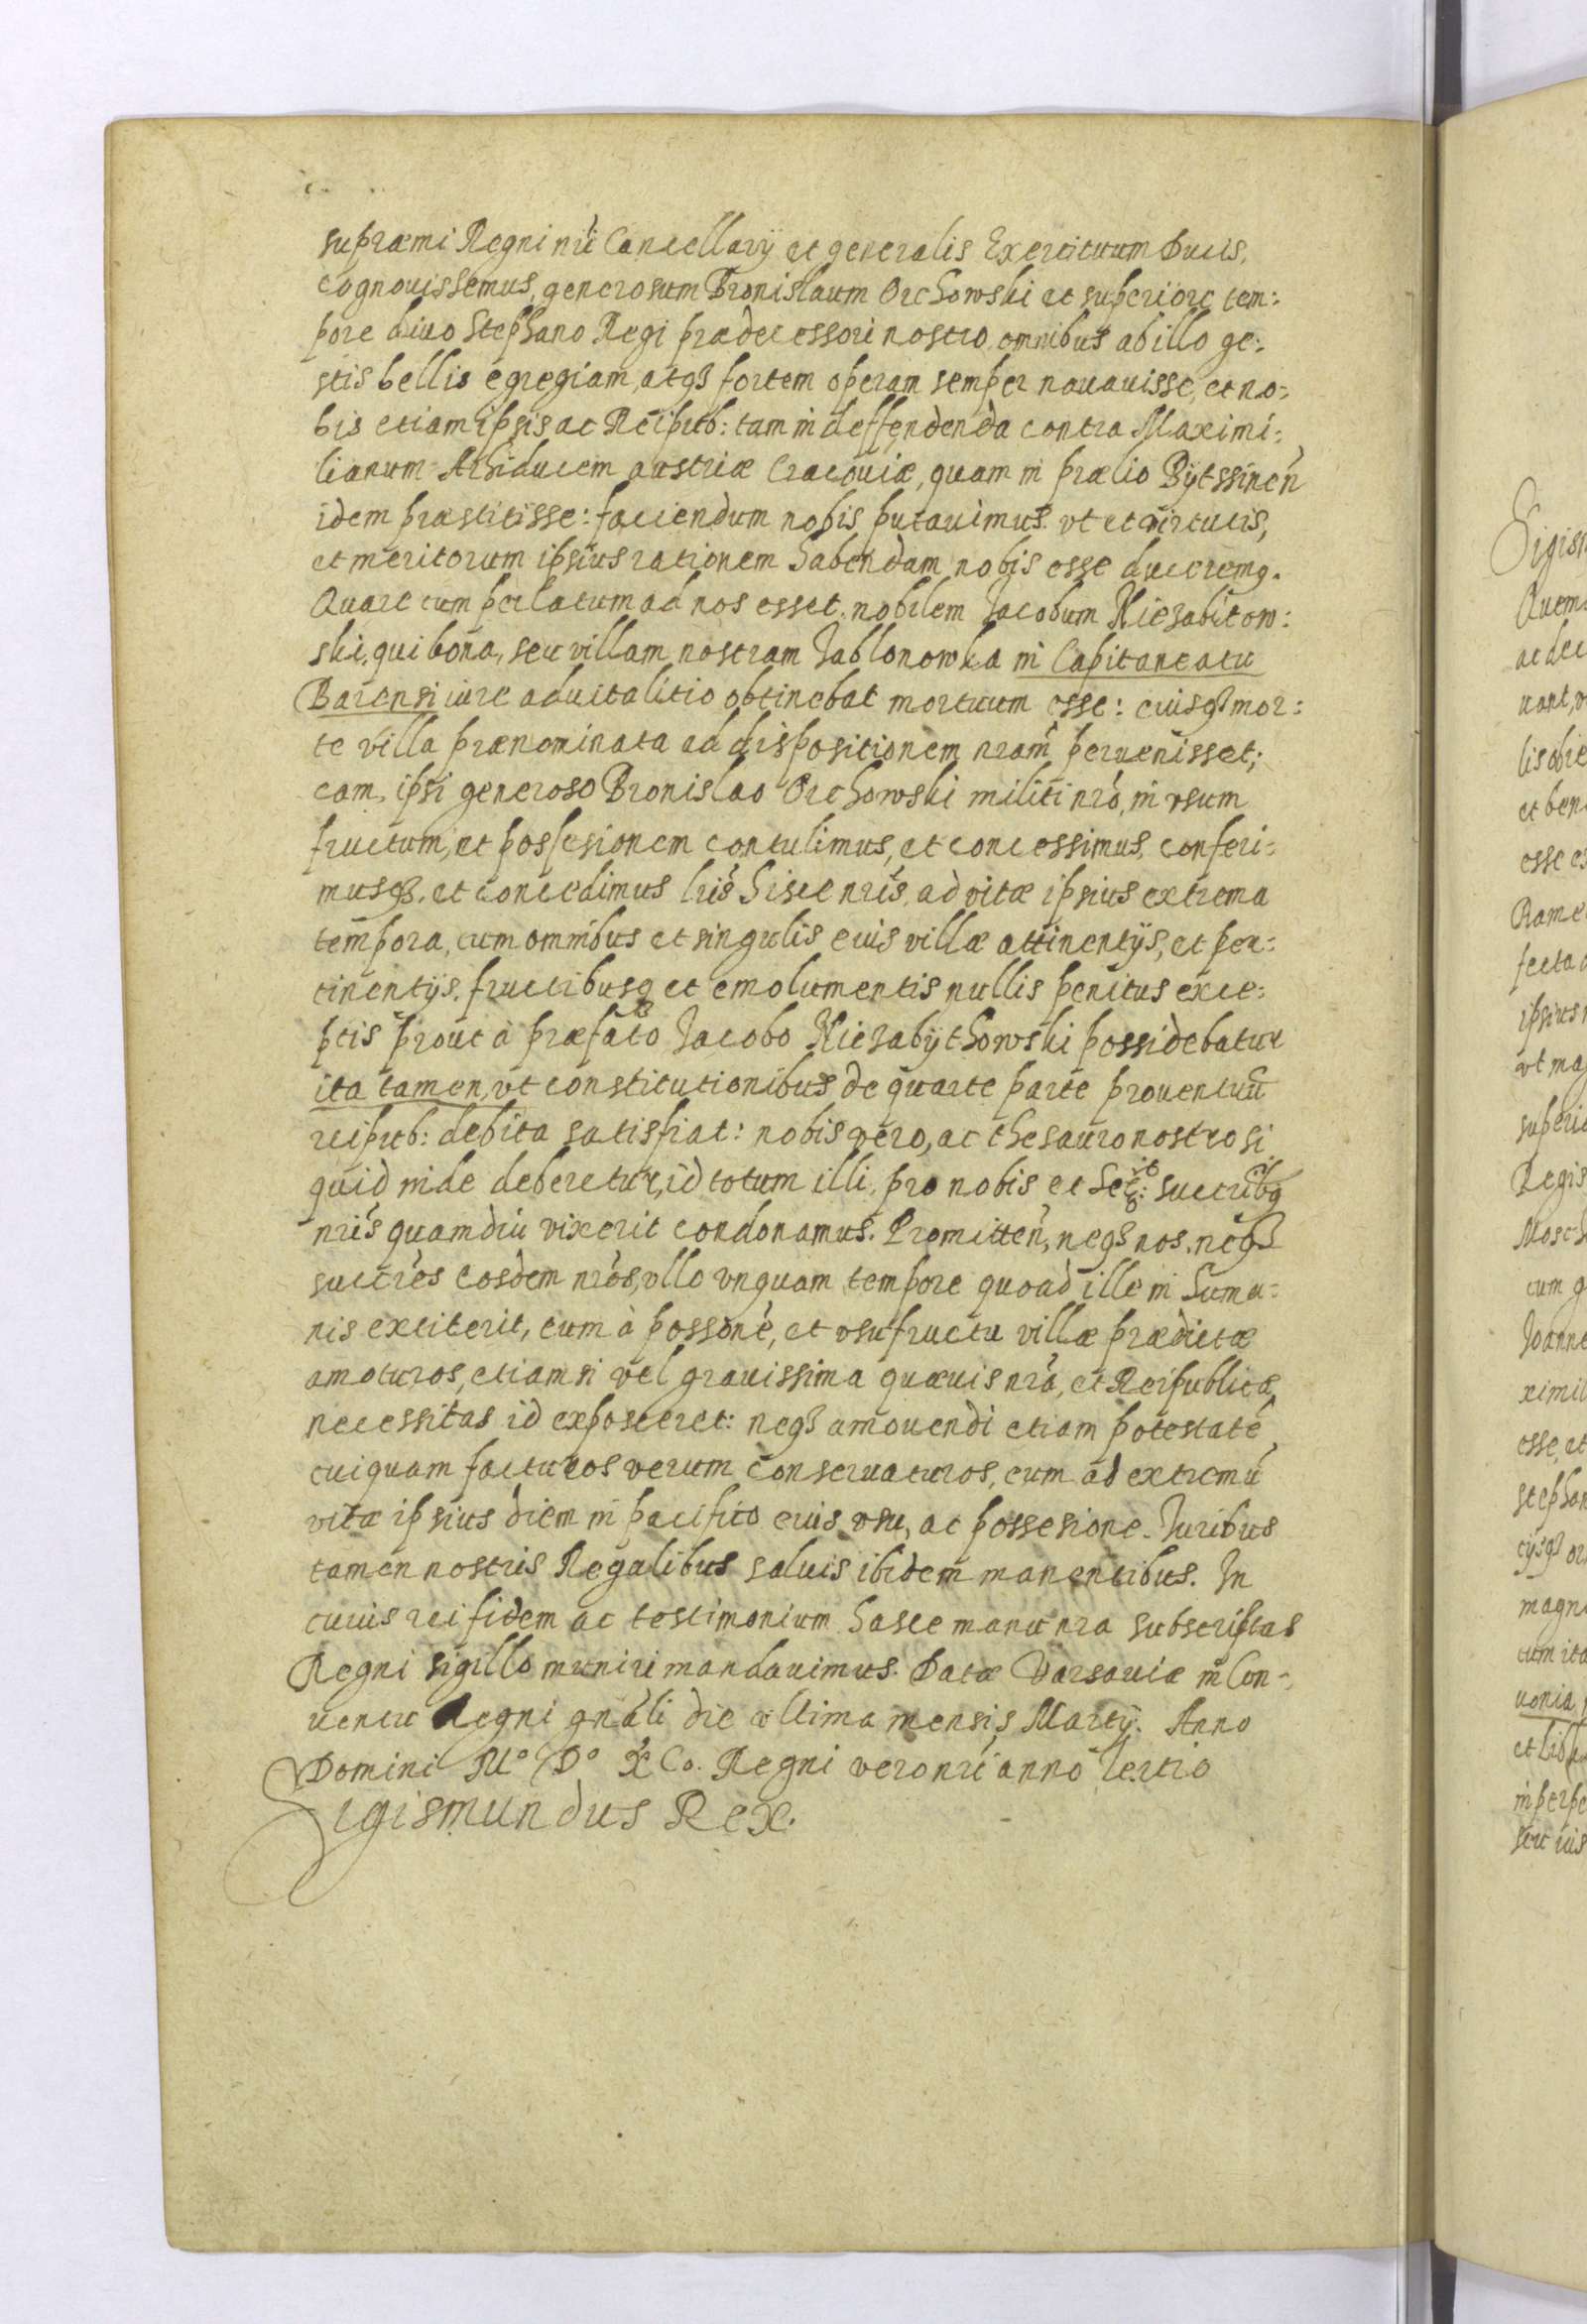 supræmi Regni nri Cancellarij et generalis Exercituum Ducis,
cognouissemus, generosum Bronislaum Orchowski et superiore tem:
pore diuo Stephano Regi prædecessori nostro, omnibus ab illo ge:
stis bellis egregiam, atq3 fortem operam semper nauauisse, et no:
bis etiam ipsis ac Reipub: tam in deffendenda contra Maximi:
lianum Arhiducem austriæ Cracouiæ, quam in prælio Bytssinen
idem præstitisse: faciendum nobis putauimus. vt et virtutis,
et meritorum ipsius rationem habendam nobis esse duceremq.
Quare cum perlatum ad nos esset. nobilem Jacobum Niezabitow:
ski, qui bona, seu villam nostram Jablonowka in Capitaneatu
Barensi iure aduitalitio obtinebat mortuum esse: eiusq3 mor:
te villa prænominata ad dispositionem nram peruenisset;
eam, ipsi generoso Bronislao Orchowski militi nro, in vsum
fructum, et possesionem contulimus, et concessimus, conferi:
musq3. et concedimus lris hisce nris, ad vitæ ipsius extrema
tempora, cum omnibus et singulis euis villæ attinentijs, et per:
tinentijs. fructibusq3 et emolumentis nullis penitus exce:
ptis prout à præfato Jacobo Niezabijthowski possidebatur
ita tamen, vt constitutionibus de quarte parte prouentuu
reipub: debita satisfiat: nobis vero, ac thesauro nostro si
quid inde deberetur, id totum illi, pro nobis et Se: succribq
nris quamdiu vixerit condonamus. Promitten, neq3 nos, neq3
succres eosdem nros, vllo vnquam tempore quoad ille in huma:
nis extiterit, eum à possone, et vsufructu villæ prædictæ
amoturos, etiamsi vel grauissima quæuis nra, et Reipublicæ
necessitas id exposceret: neq3 amouendi etiam potestate
cuiquam facturos verum conseruaturos, eum ad extremu
vitæ ipsius diem in pacifico euis vsu, ac possesione. Juribus
tamen nostris Regalibus saluis ibidem manentibus. In
cuius rei fidem ac testimonium hasce manu nra subscriptas
Regni sigillo muniri mandauimus. Datæ Varsauiæ in Con-
uentu Regni gnali die vltima mensis Martij. Anno
Domini Mº Dº XCo. Regni vero nri anno Tertio
Sigismundus Rex.